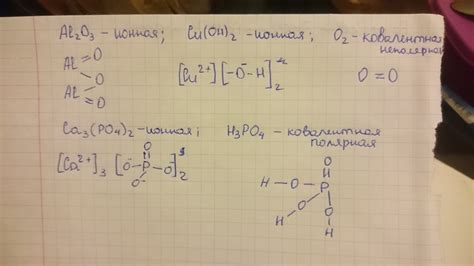 Al₂O₃ - ионная; Cu(OH)₂ - ионная; O₂ - ковалентная неполярная
Al=O
O
Al=O
[Cu²⁺][-O⁻-H]₂
O=O
Ca₃(PO₄)₂ - ионная; H₃PO₄ - ковалентная полярная
[Ca²⁺]₃ [O⁻-P(=O)-O⁻ O⁻]₂
O
H-O-P
H O O
H